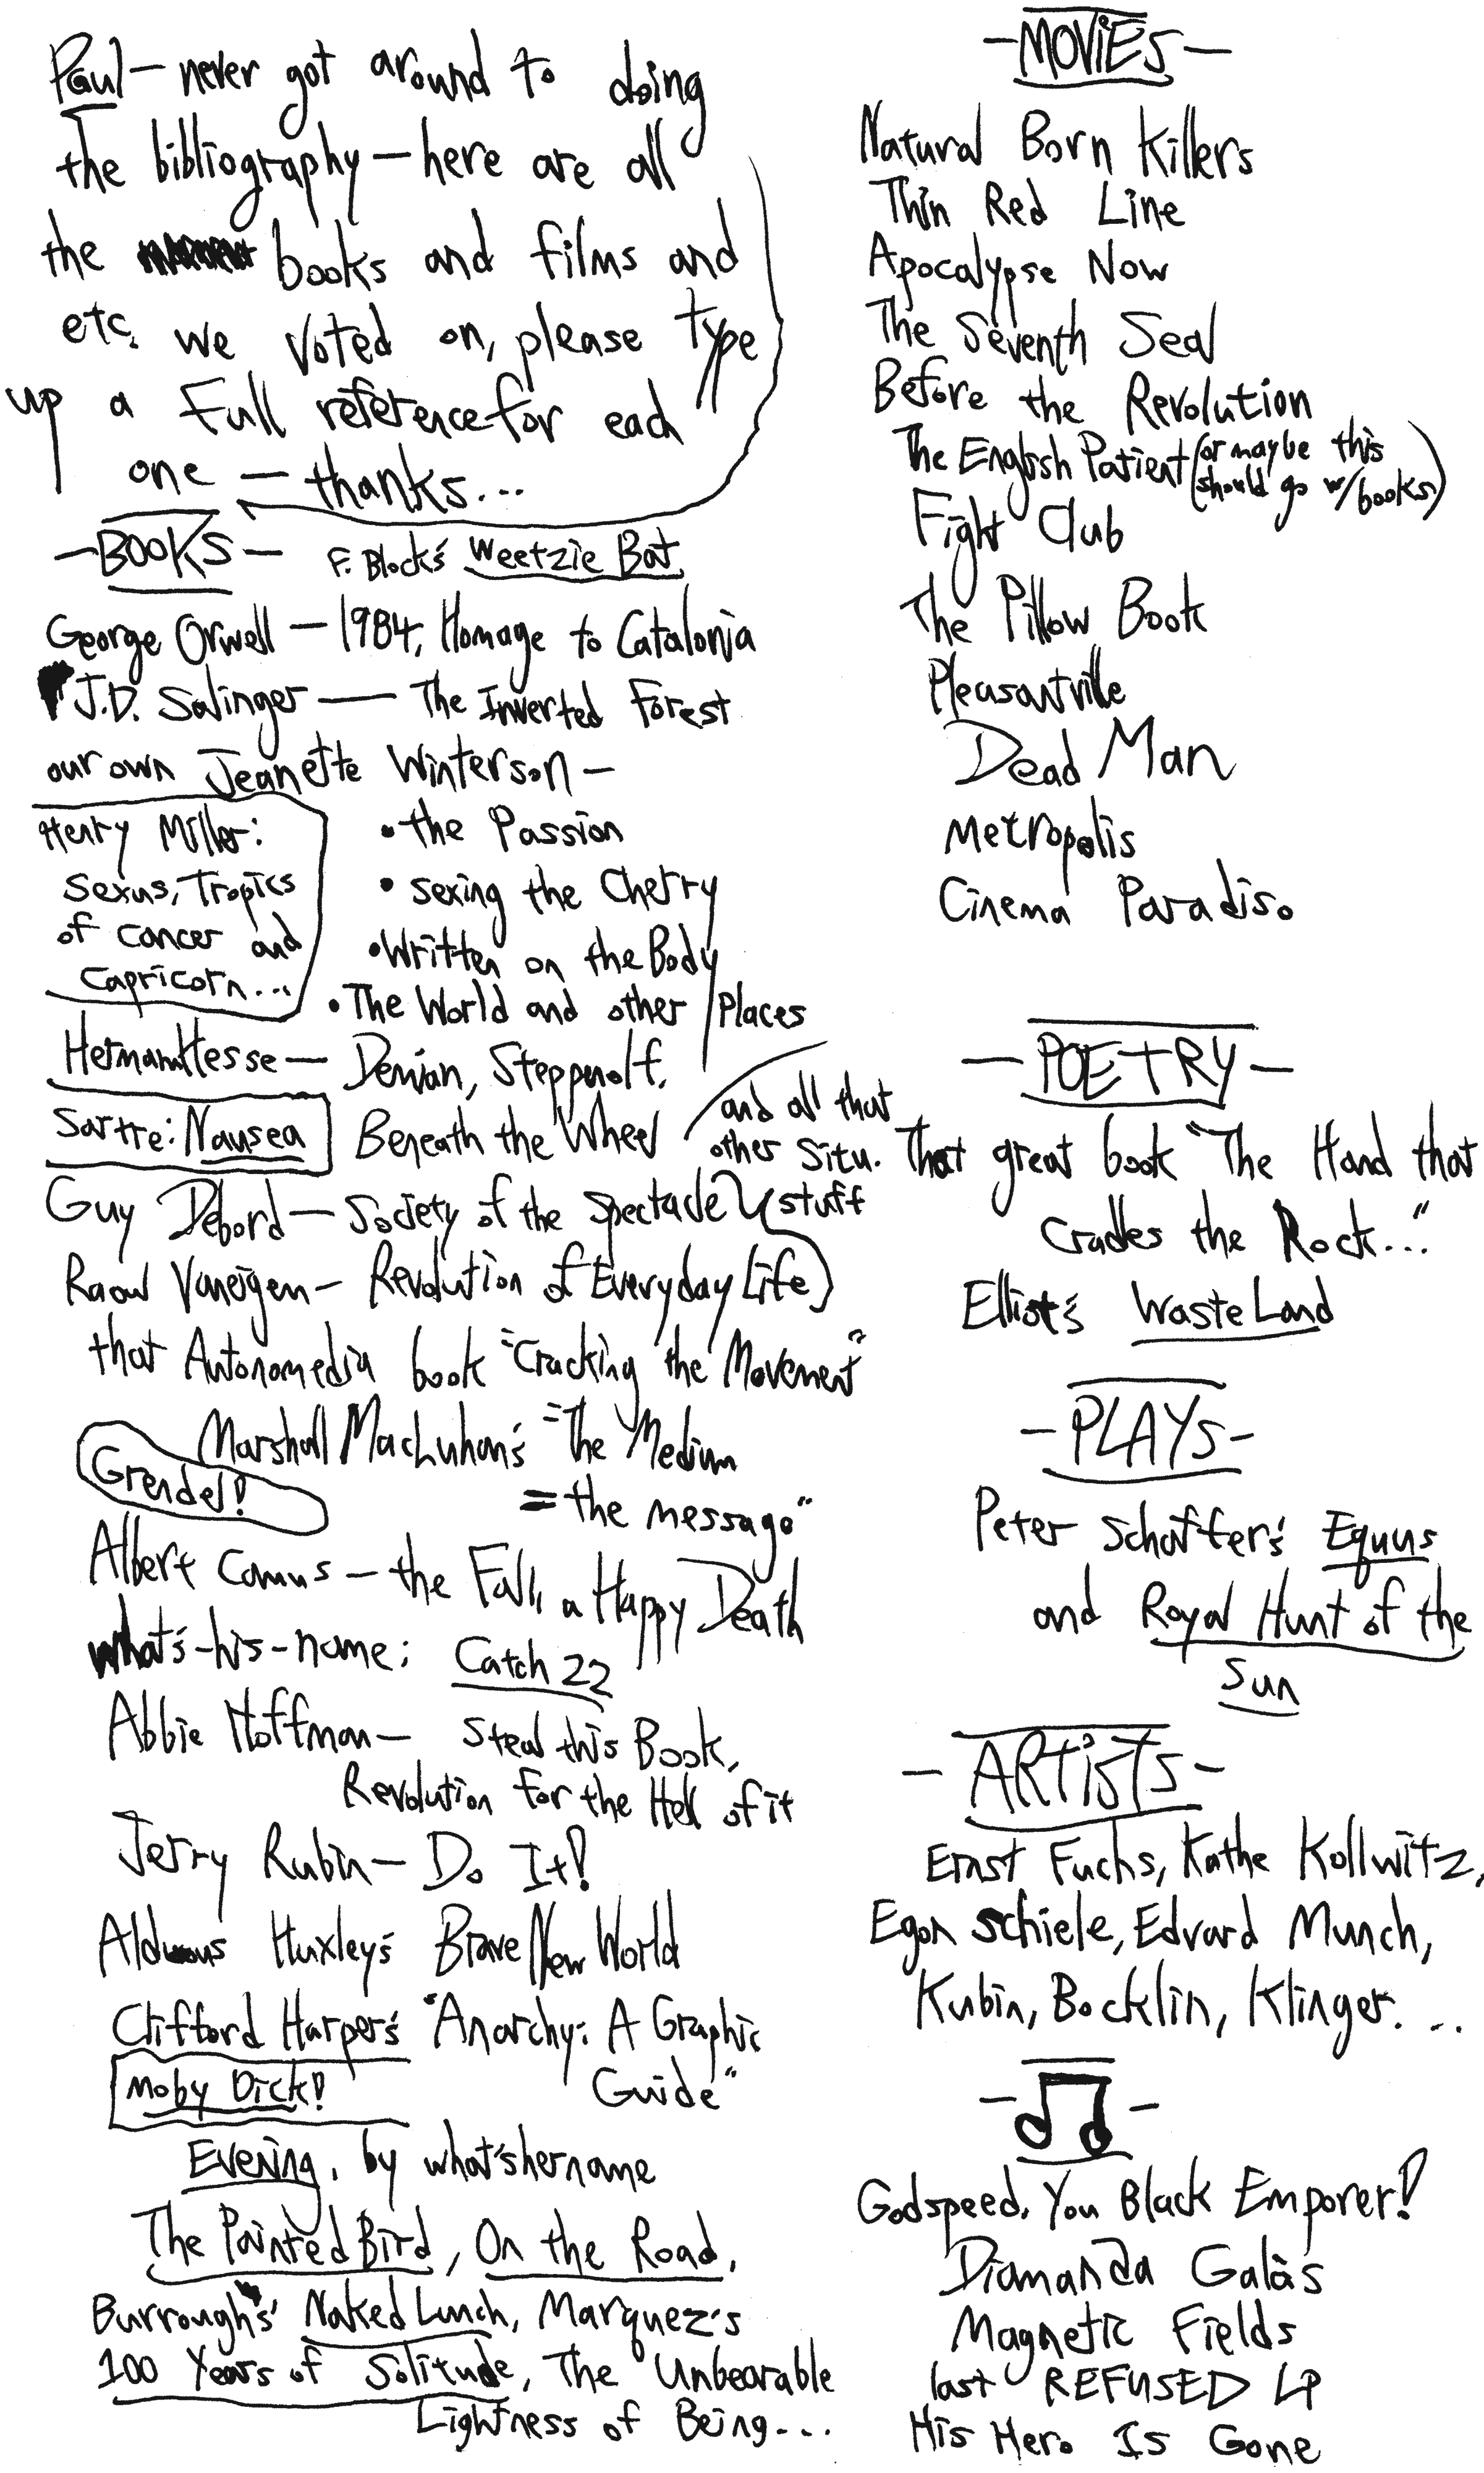 Paul — never got around to doing
the bibliography — here are all
the books and films and
etc. we voted on, please type
up a full reference for each
one — thanks...
- BOOKS -
F. Block's Weetzie Bat
George Orwell — 1984, Homage to Catalonia
J.D. Salinger — The Inverted Forest
our own Jeanette Winterson —
• the Passion
• sexing the Cherry
• Written on the Body
• The World and other Places
Henry Miller:
Sexus, Tropics
of Cancer and
Capricorn...
Herman Hesse — Demian, Steppenwolf,
Beneath the Wheel
Sartre: Nausea
Guy Debord — Society of the Spectacle
and all that
other Situ.
stuff
Raoul Vaneigem — Revolution of Everyday Life
that Autonomedia book "Cracking the Movement"
Marshall MacLuhan's "The Medium
= the message"
Grendel!
Albert Camus — the Fall, a Happy Death
what's-his-name: Catch 22
Abbie Hoffman — Steal this Book,
Revolution for the Hell of it
Jerry Rubin — Do It!
Aldous Huxley's Brave New World
Clifford Harper's "Anarchy: A Graphic
Guide"
Moby Dick!
Evening, by what'shername
The Painted Bird, On the Road,
Burroughs' Naked Lunch, Marquez's
100 Years of Solitude, The Unbearable
Lightness of Being...
- MOViES -
Natural Born Killers
Thin Red Line
Apocalypse Now
The Seventh Seal
Before the Revolution
The English Patient (or maybe this
should go w/books)
Fight Club
The Pillow Book
Pleasantville
Dead Man
Metropolis
Cinema Paradiso
- POETRY -
That great book "The Hand that
Cradles the Rock..."
Elliot's Waste Land
- PLAYS -
Peter Schaffer's Equus
and Royal Hunt of the
Sun
- ARTiSTS -
Ernst Fuchs, Kathe Kollwitz,
Egon Schiele, Edvard Munch,
Kubin, Bocklin, Klinger...
- ♫ -
Godspeed, You Black Emporer!
Diamanda Galàs
Magnetic Fields
last REFUSED LP
His Hero Is Gone